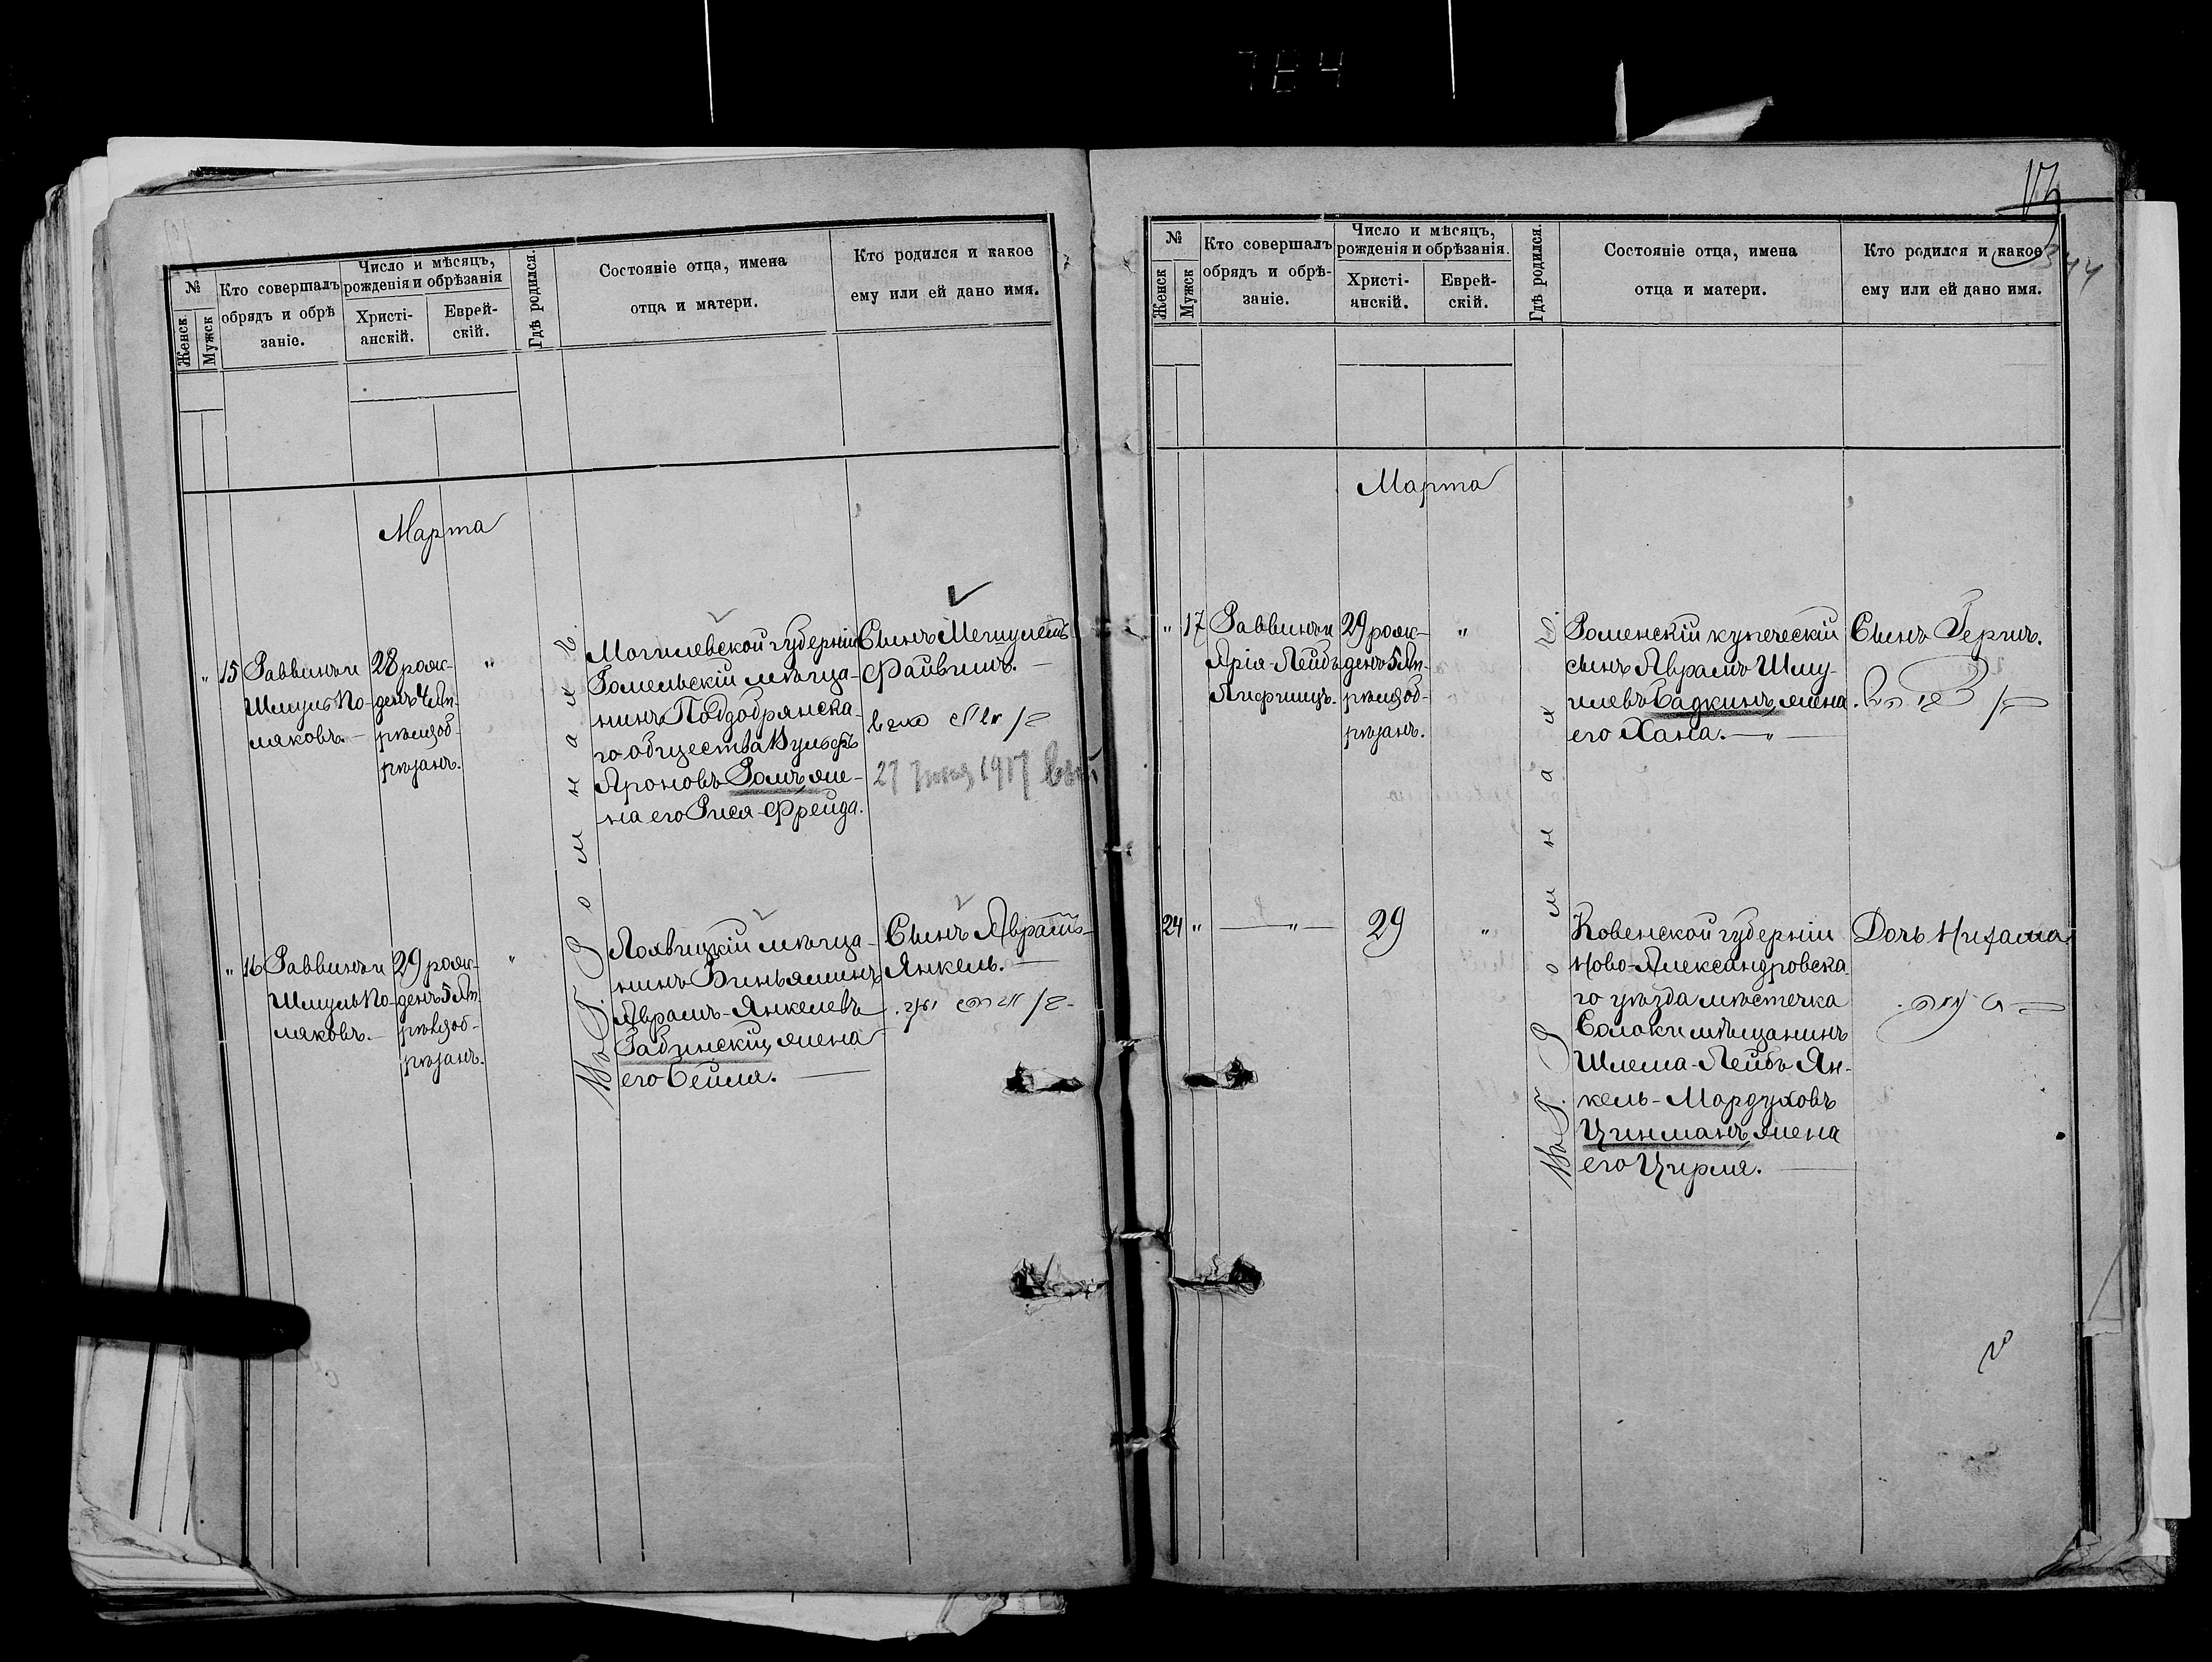 784
№
Женск.
Мужск
Кто совершалъ
обрядъ и обрѣ
заніе.
Число и мѣсяцъ,
рожденія и обрѣзанія
Христі-
анскій.
Еврей-
скій.
Гдѣ родился.
Состояніе отца, имена
отца и матери.
Кто родился и какое
ему или ей дано имя.
Марта
"
15
Раввинъ и
Шмуль По-
ляковъ.
28 рож-
денъ 4 Ап-
рѣля об-
рѣзанъ.
"
Въ Г. Ромнахъ.
Могилевской губерніи
Гомельскій мѣща-
нинъ Поддобрянска-
го общества Вульфъ
Ароновъ Ромъ, же-
на его Рися-Фрейда.
Сынъ Мешулемъ
Файвишъ.
27 1917
"
16
Раввинъ и
Шмуль По-
ляковъ.
29 рож-
денъ 5 Ап-
рѣля об-
рѣзанъ.
"
Лохвицкій мѣща-
нинъ Биньяминъ
Аврамъ-Янкелевъ
Рабинскій, жена
его Бейля.
Сынъ Аврамъ-
Янкель.
344
№
Женск
Мужск
Кто совершалъ
обрядъ и обрѣ-
заніе.
Число и мѣсяцъ,
рожденія и обрѣзанія.
Христі-
анскій.
Еврей-
скій.
Гдѣ родился.
Состояніе отца, имена
отца и матери.
Кто родился и какое
ему или ей дано имя.
Марта
"
17
Раввинъ и
Арія-Лейбъ
Лифшицъ.
29 рож-
денъ 5 Ап-
рѣля об-
рѣзанъ.
"
Въ Г. Ромнахъ.
Роменскій купеческій
сынъ Аврамъ Шму-
илевъ Садкинъ, жена
его Хана.
Сынъ Гершъ.
24
"
"
29
"
Ковенской губерніи
Ново-Александровска-
го уѣзда мѣстечка
Солоки мѣщанинъ
Шлема-Лейбъ Ян-
кель-Мордуховъ
Цинманъ, жена
его Цирля.
Дочь Нихама